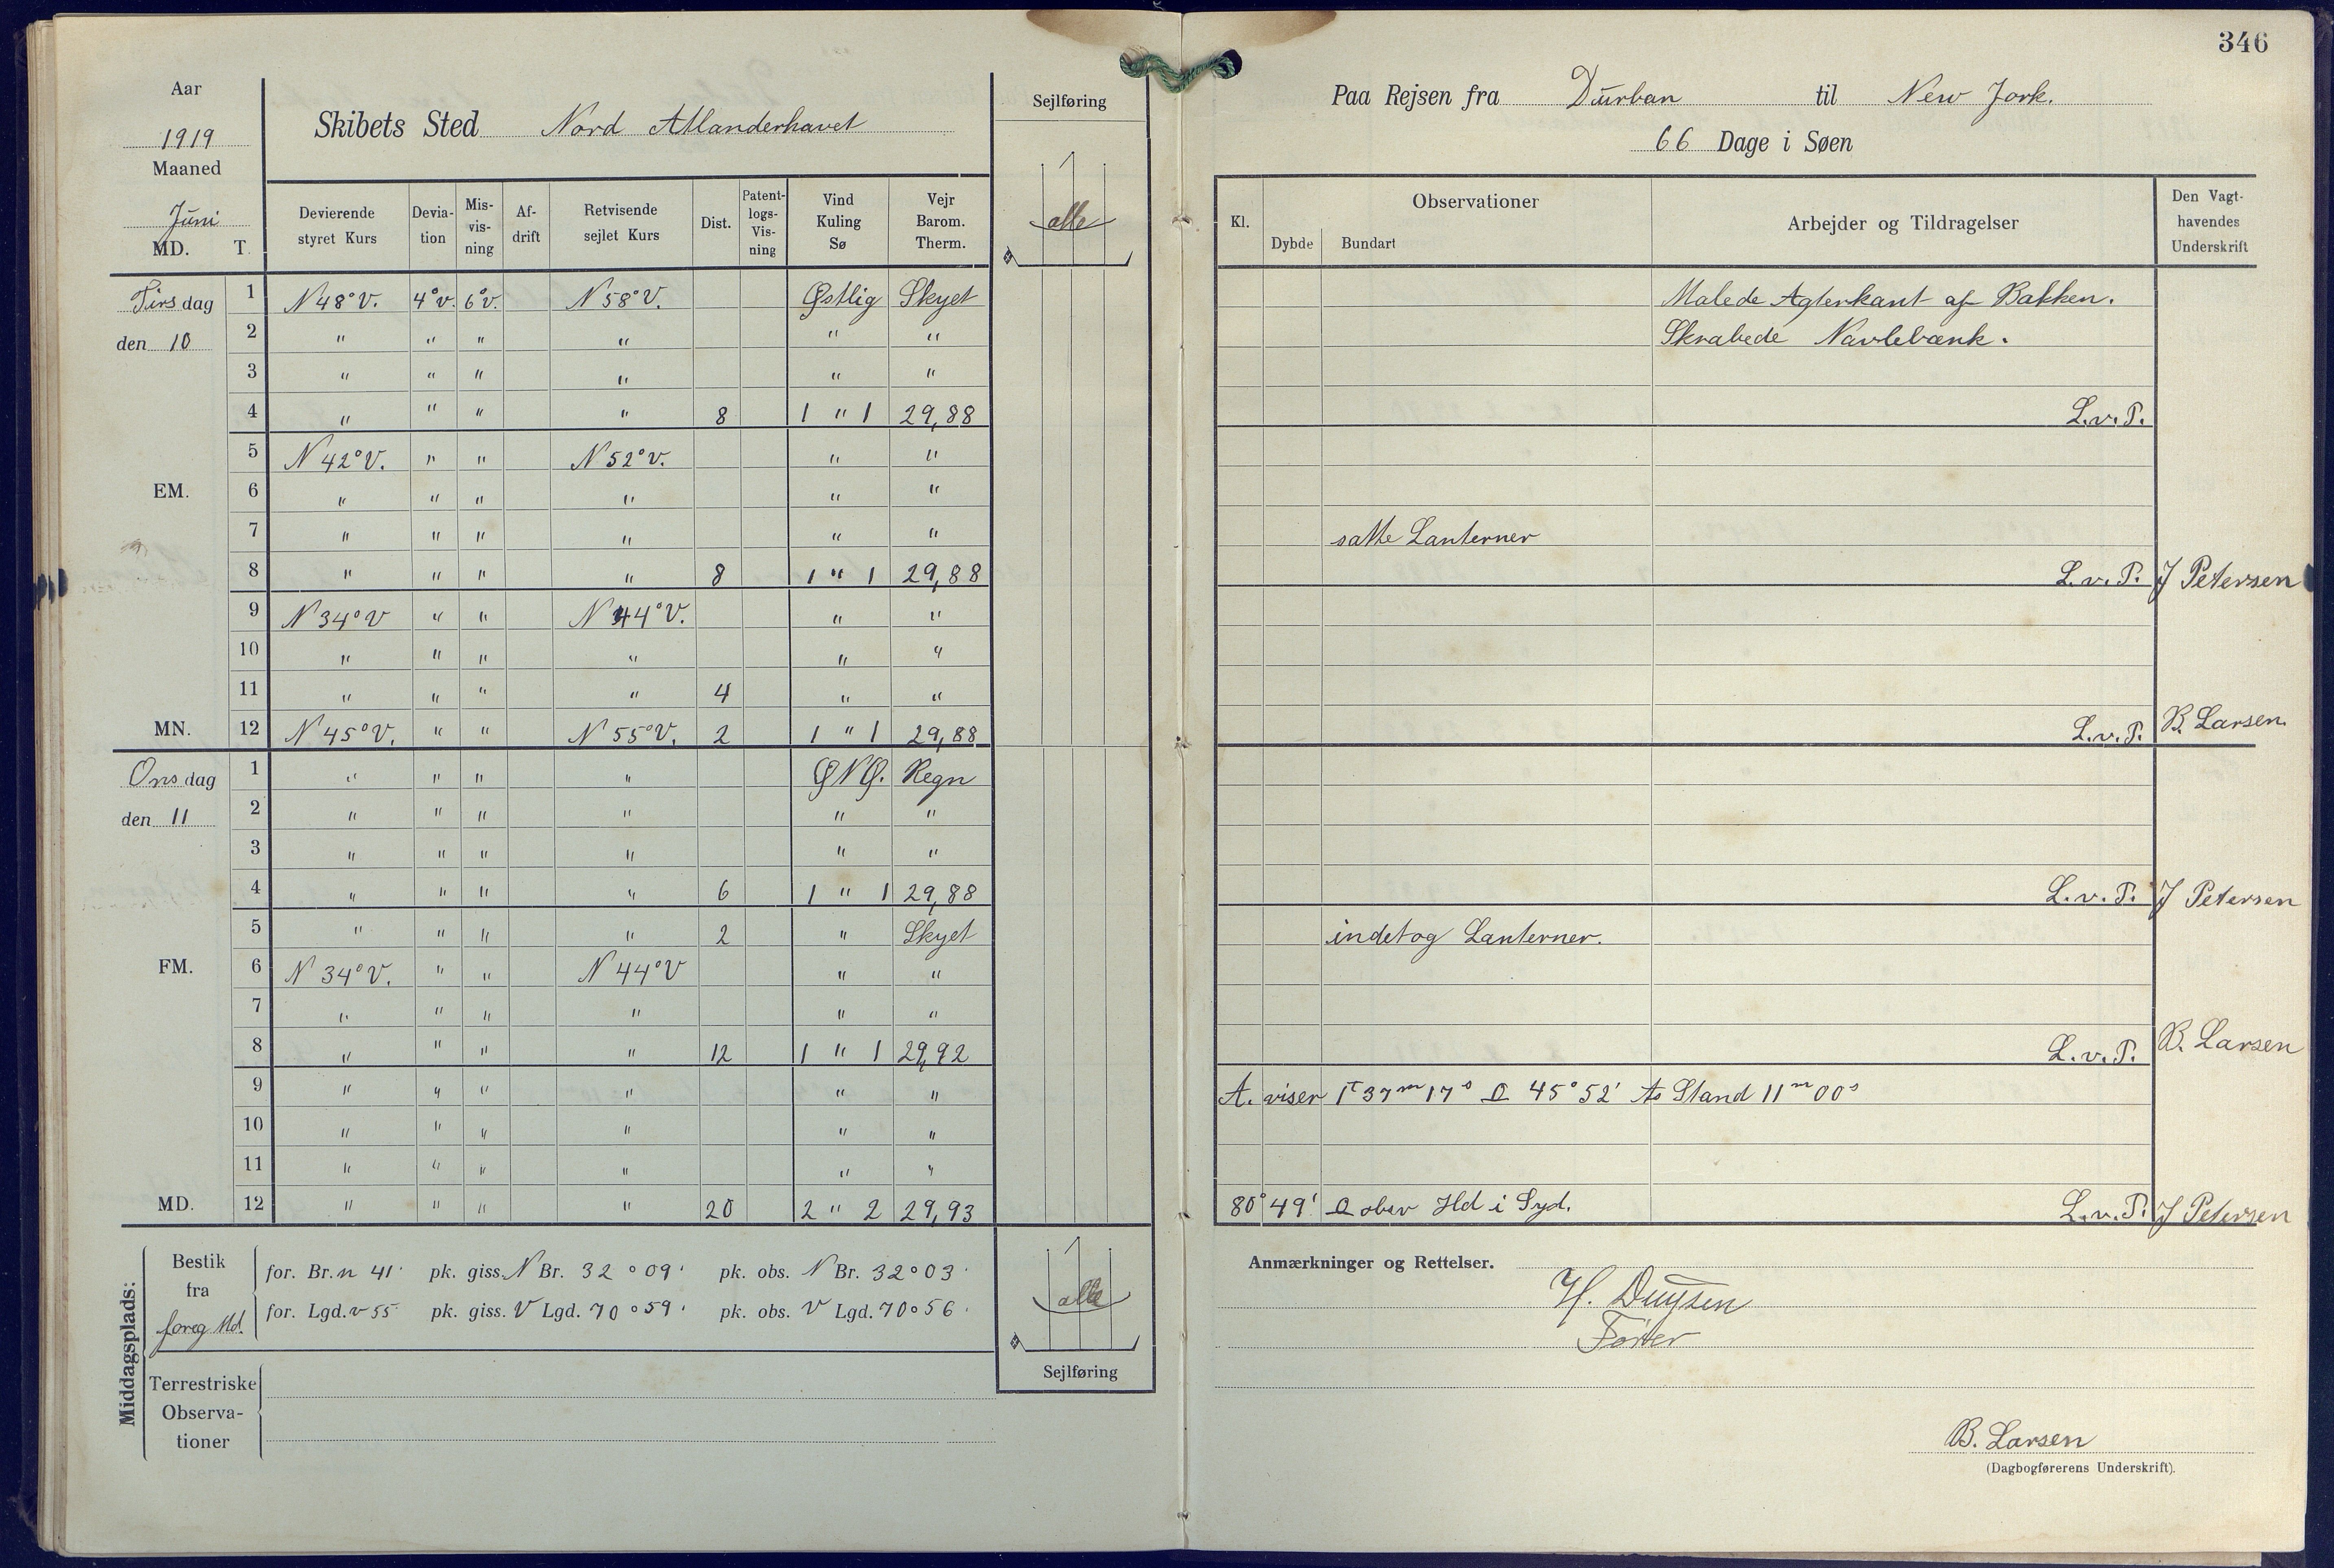 Aar
1919
Maaned
Juni
MD. T.
Skibets Sted Nord Atlanderhavet
Sejlføring
alle
Devierende styret Kurs
Deviation
Misvisning
Afdrift
Retvisende sejlet Kurs
Dist.
Patentlogs-Visning
Vind Kuling Sø
Vejr Barom. Therm.
Tirsdag 1 N 48° V. 4° v. 6° v. N 58° V. Østlig Skyet
den 10 2 " " " " " "
3 " " " " " "
4 " " " " 8 1 " 1 29,88
5 N 42° V. " " N 52° V. " "
EM. 6 " " " " " "
7 " " " " " "
8 " " " " 8 1 " 1 29,88
9 N 34° V " " N 44° V. " "
10 " " " " " "
11 " " " " 4 " "
MN. 12 N 45° V. " " N 55° V. 2 1 " 1 29,88
Onsdag 1 " " " " ØNØ. Regn
den 11 2 " " " " " "
3 " " " " " "
4 " " " " 6 1 " 1 29,88
5 " " " " 2 " Skyet
FM. 6 N 34° V. " " N 44° V " "
7 " " " " " "
8 " " " " 12 1 " 1 29,92
9 " " " " " "
10 " " " " " "
11 " " " " " "
MD. 12 " " " " 20 2 " 2 29,93
Middagsplads:
Bestik fra foreg Md.
for. Br. n 41' pk. giss. N Br. 32° 09' pk. obs. N Br. 32° 03'
for. Lgd. v 55 pk. giss. V Lgd. 70° 59' pk. obs. V Lgd. 70° 56'
Terrestriske Observationer
alle
Sejlføring
346
Paa Rejsen fra Durban til New Jork.
66 Dage i Søen
Kl.
Observationer
Dybde Bundart
Arbejder og Tildragelser
Den Vagthavendes Underskrift
Malede Agterkant af Bakken.
Skrabede Navlebænk.
L.v.P.
satte Lanterner
L.v.P. J Petersen
L.v.P. B. Larsen.
L.v.P. J Petersen
indetog Lanterner.
L.v.P. B. Larsen
A. viser 1t 37m 17s O 45° 52' As Stand 11m 00s
80° 49' O obsv Hd i Syd. L.v.P. J Petersen
Anmærkninger og Rettelser.
H. Duysen
Fører
B. Larsen
(Dagbogførerens Underskrift).